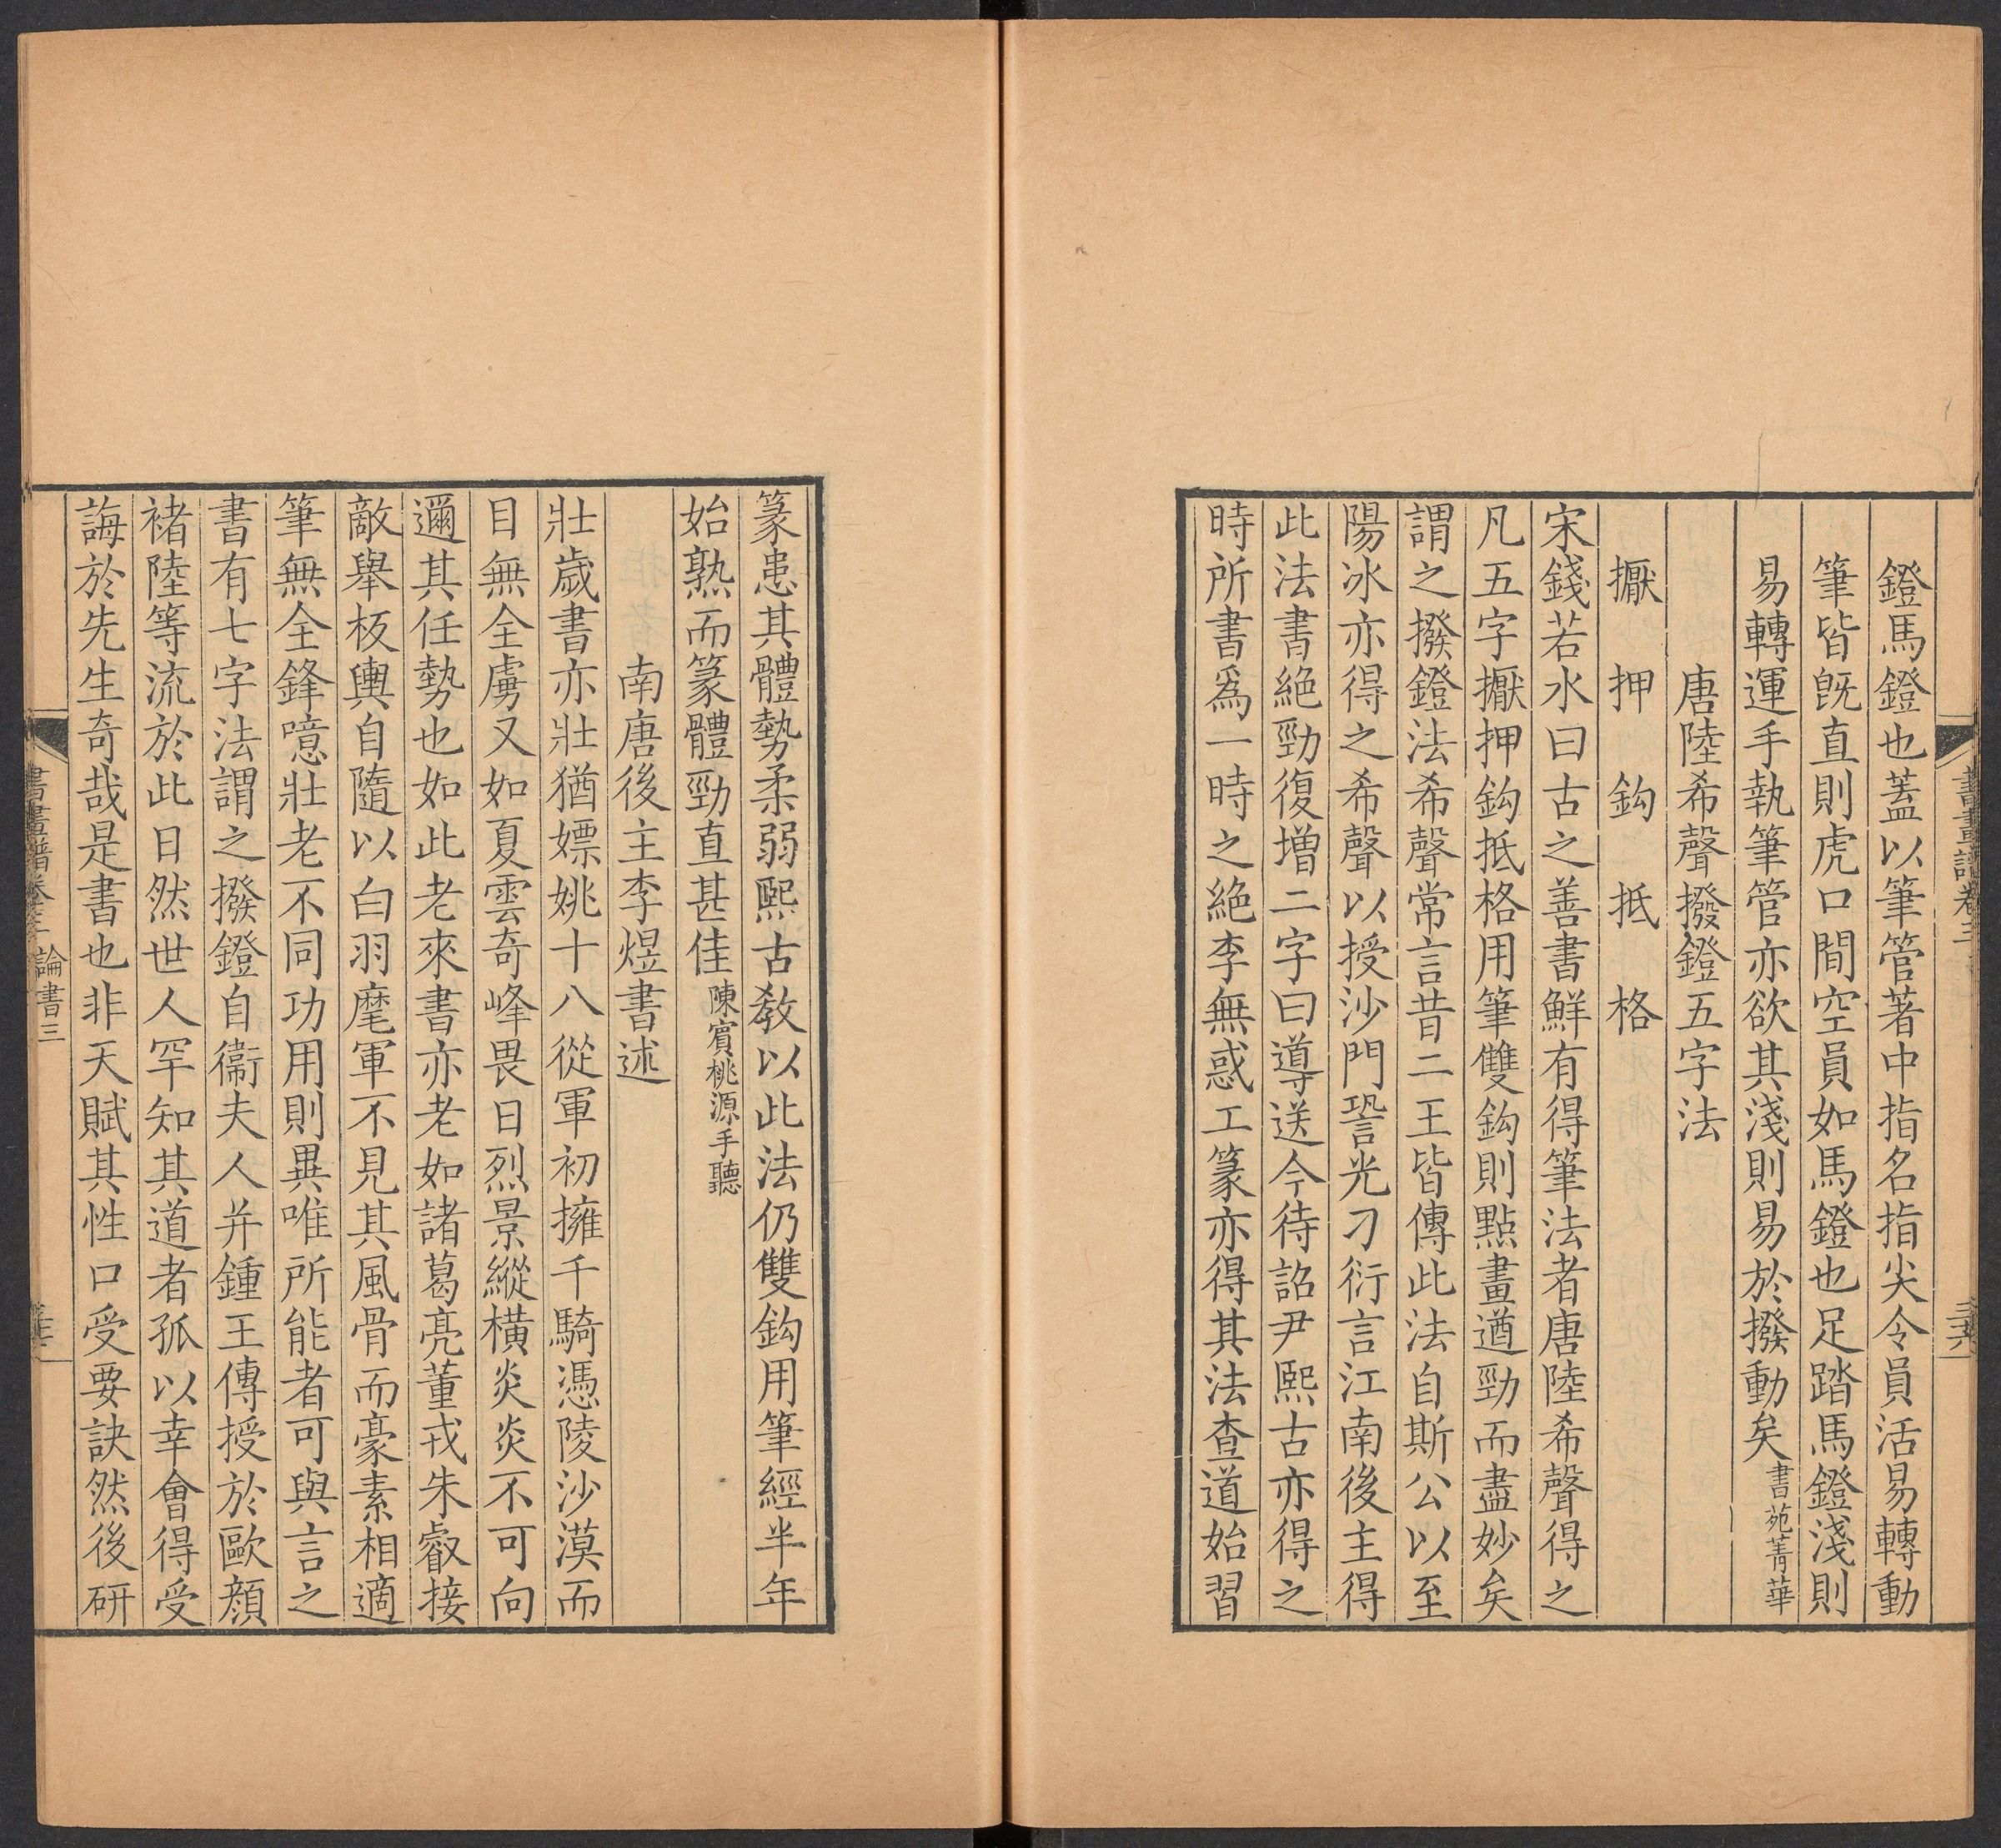 鐙馬鐙也蓋以筆管著中指名指尖令員活易轉動
筆皆旣直則虎口間空員如馬鐙也足踏馬鐙淺則
易轉運手執筆管亦欲其淺則易於撥動矣書苑菁華
唐陸希聲撥鐙五字法
擫 押 鈎 抵 格
宋錢若水曰古之善書鮮有得筆法者唐陸希聲得之
凡五字擫押鈎抵格用筆雙鈎則點畫遒勁而盡妙矣
謂之撥鐙法希聲常言昔二王皆傳此法自斯公以至
陽冰亦得之希聲以授沙門䛒光刁衍言江南後主得
此法書絶勁復增二字曰導送今待詔尹熙古亦得之
時所書爲一時之絶李無惑工篆亦得其法查道始習
篆患其體勢柔弱熙古敎以此法仍雙鈎用筆經半年
始熟而篆體勁直甚佳陳賓桃源手聽
南唐後主李煜書述
壯歲書亦壯猶嫖姚十八從軍初擁千騎憑陵沙漠而
目無全虜又如夏雲奇峰畏日烈景縱橫炎炎不可向
邇其任勢也如此老來書亦老如諸葛亮董戎朱叡接
敵舉板輿自隨以白羽麾軍不見其風骨而豪素相適
筆無全鋒噫壯老不同功用則異唯所能者可與言之
書有七字法謂之撥鐙自衞夫人并鍾王傳授於歐顔
褚陸等流於此日然世人罕知其道者孤以幸會得受
誨於先生奇哉是書也非天賦其性口受要訣然後研
書畫譜卷三 論書三